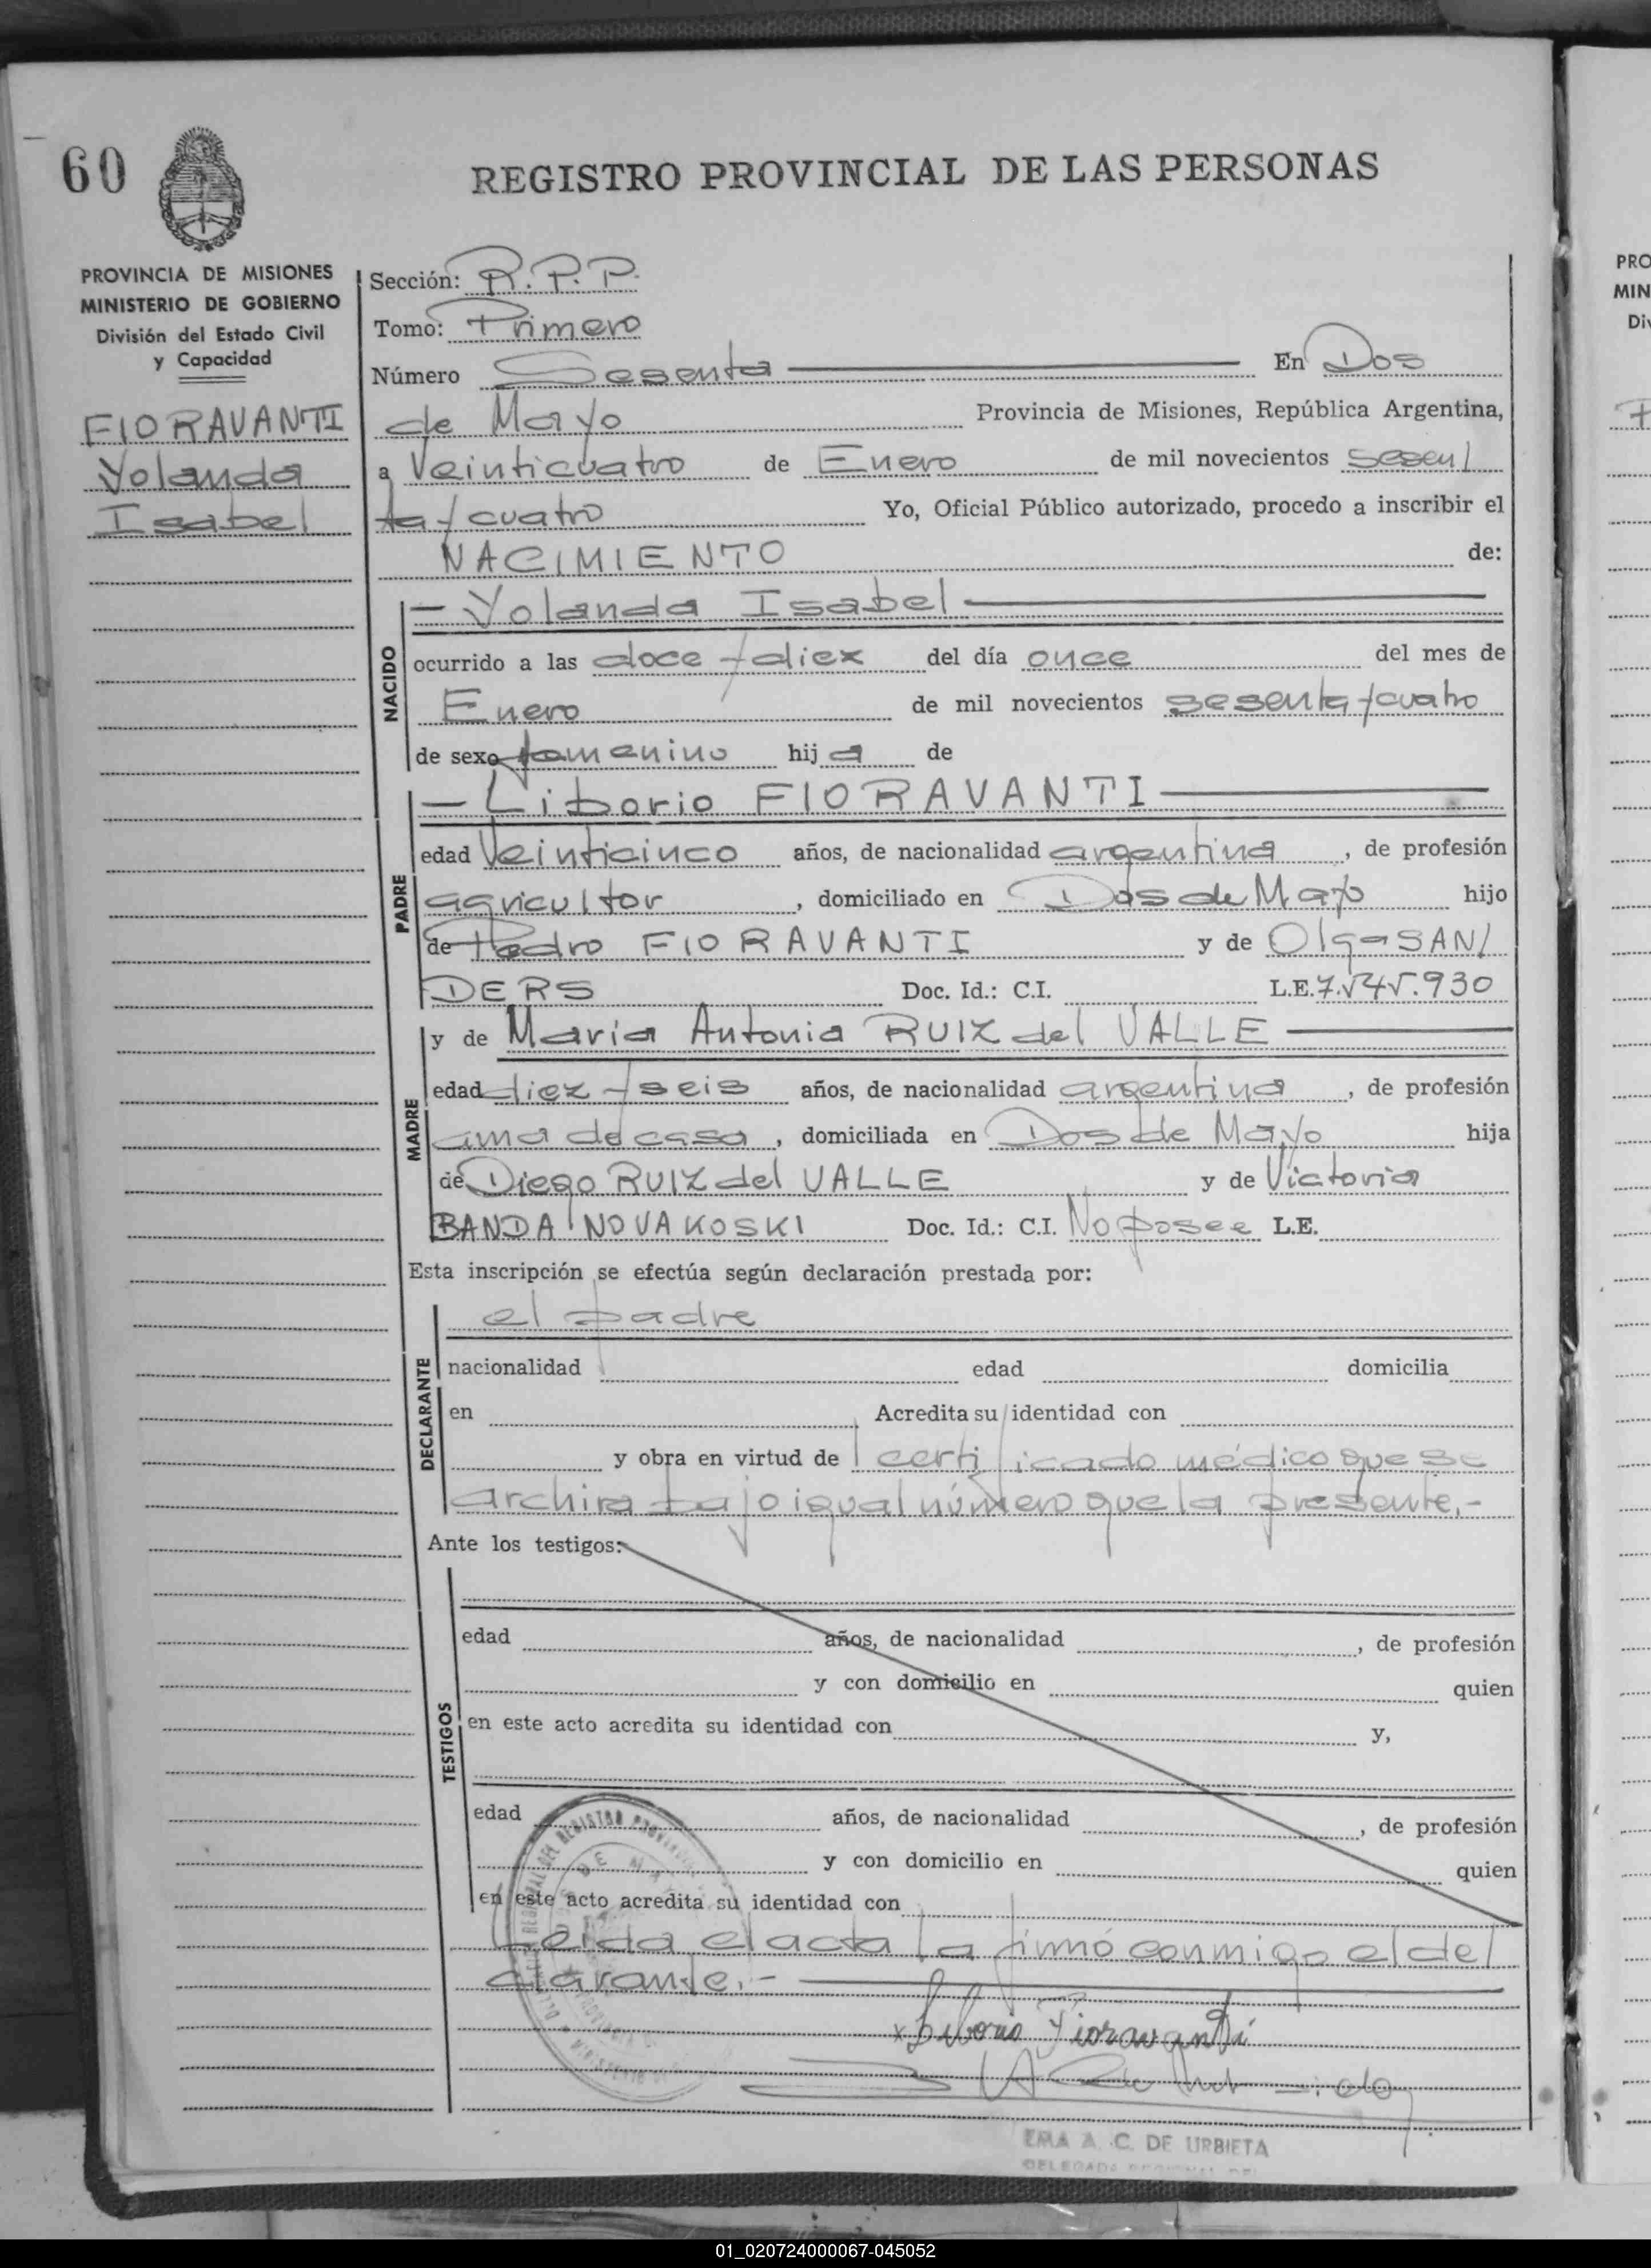 60
REGISTRO PROVINCIAL DE LAS PERSONAS
PROVINCIA DE MISIONES
MINISTERIO DE GOBIERNO
División del Estado Civil
y Capacidad
FIORAVANTI
Yolanda
Isabel
Sección: R.P.P.
Tomo: Primero
Número Sesenta En Dos
de Mayo Provincia de Misiones, República Argentina,
a Veinticuatro de Enero de mil novecientos sesen/
ta y cuatro Yo, Oficial Público autorizado, procedo a inscribir el
NACIMIENTO de:
NACIDO
— Yolanda Isabel —
ocurrido a las doce y diez del día once del mes de
Enero de mil novecientos sesenta y cuatro
de sexo femenino hija de
PADRE
— Liborio FIORAVANTI —
edad Veinticinco años, de nacionalidad argentina, de profesión
agricultor, domiciliado en Dos de Mayo hijo
de Pedro FIORAVANTI y de Olga SAN/
DERS Doc. Id.: C.I. L.E. 7.545.930
MADRE
y de Maria Antonia RUIZ del VALLE —
edad diez y seis años, de nacionalidad argentina, de profesión
ama de casa, domiciliada en Dos de Mayo hija
de Diego RUIZ del VALLE y de Victoria
BANDA NOVAKOSKI Doc. Id.: C.I. No posee L.E.
Esta inscripción se efectúa según declaración prestada por:
DECLARANTE
el padre
nacionalidad edad domicilia
en Acredita su identidad con
y obra en virtud de certificado médico que se
archiva bajo igual número que la presente.-
Ante los testigos:
TESTIGOS
edad años, de nacionalidad, de profesión
y con domicilio en quien
en este acto acredita su identidad con y,
edad años, de nacionalidad, de profesión
y con domicilio en quien
en este acto acredita su identidad con
Leida el acta la firmó conmigo el de/
clarante.-
x Liborio Fioravanti
EMA A. C. DE URBIETA
DELEGADA
PRO
MIN
Di
01_020724000067-045052